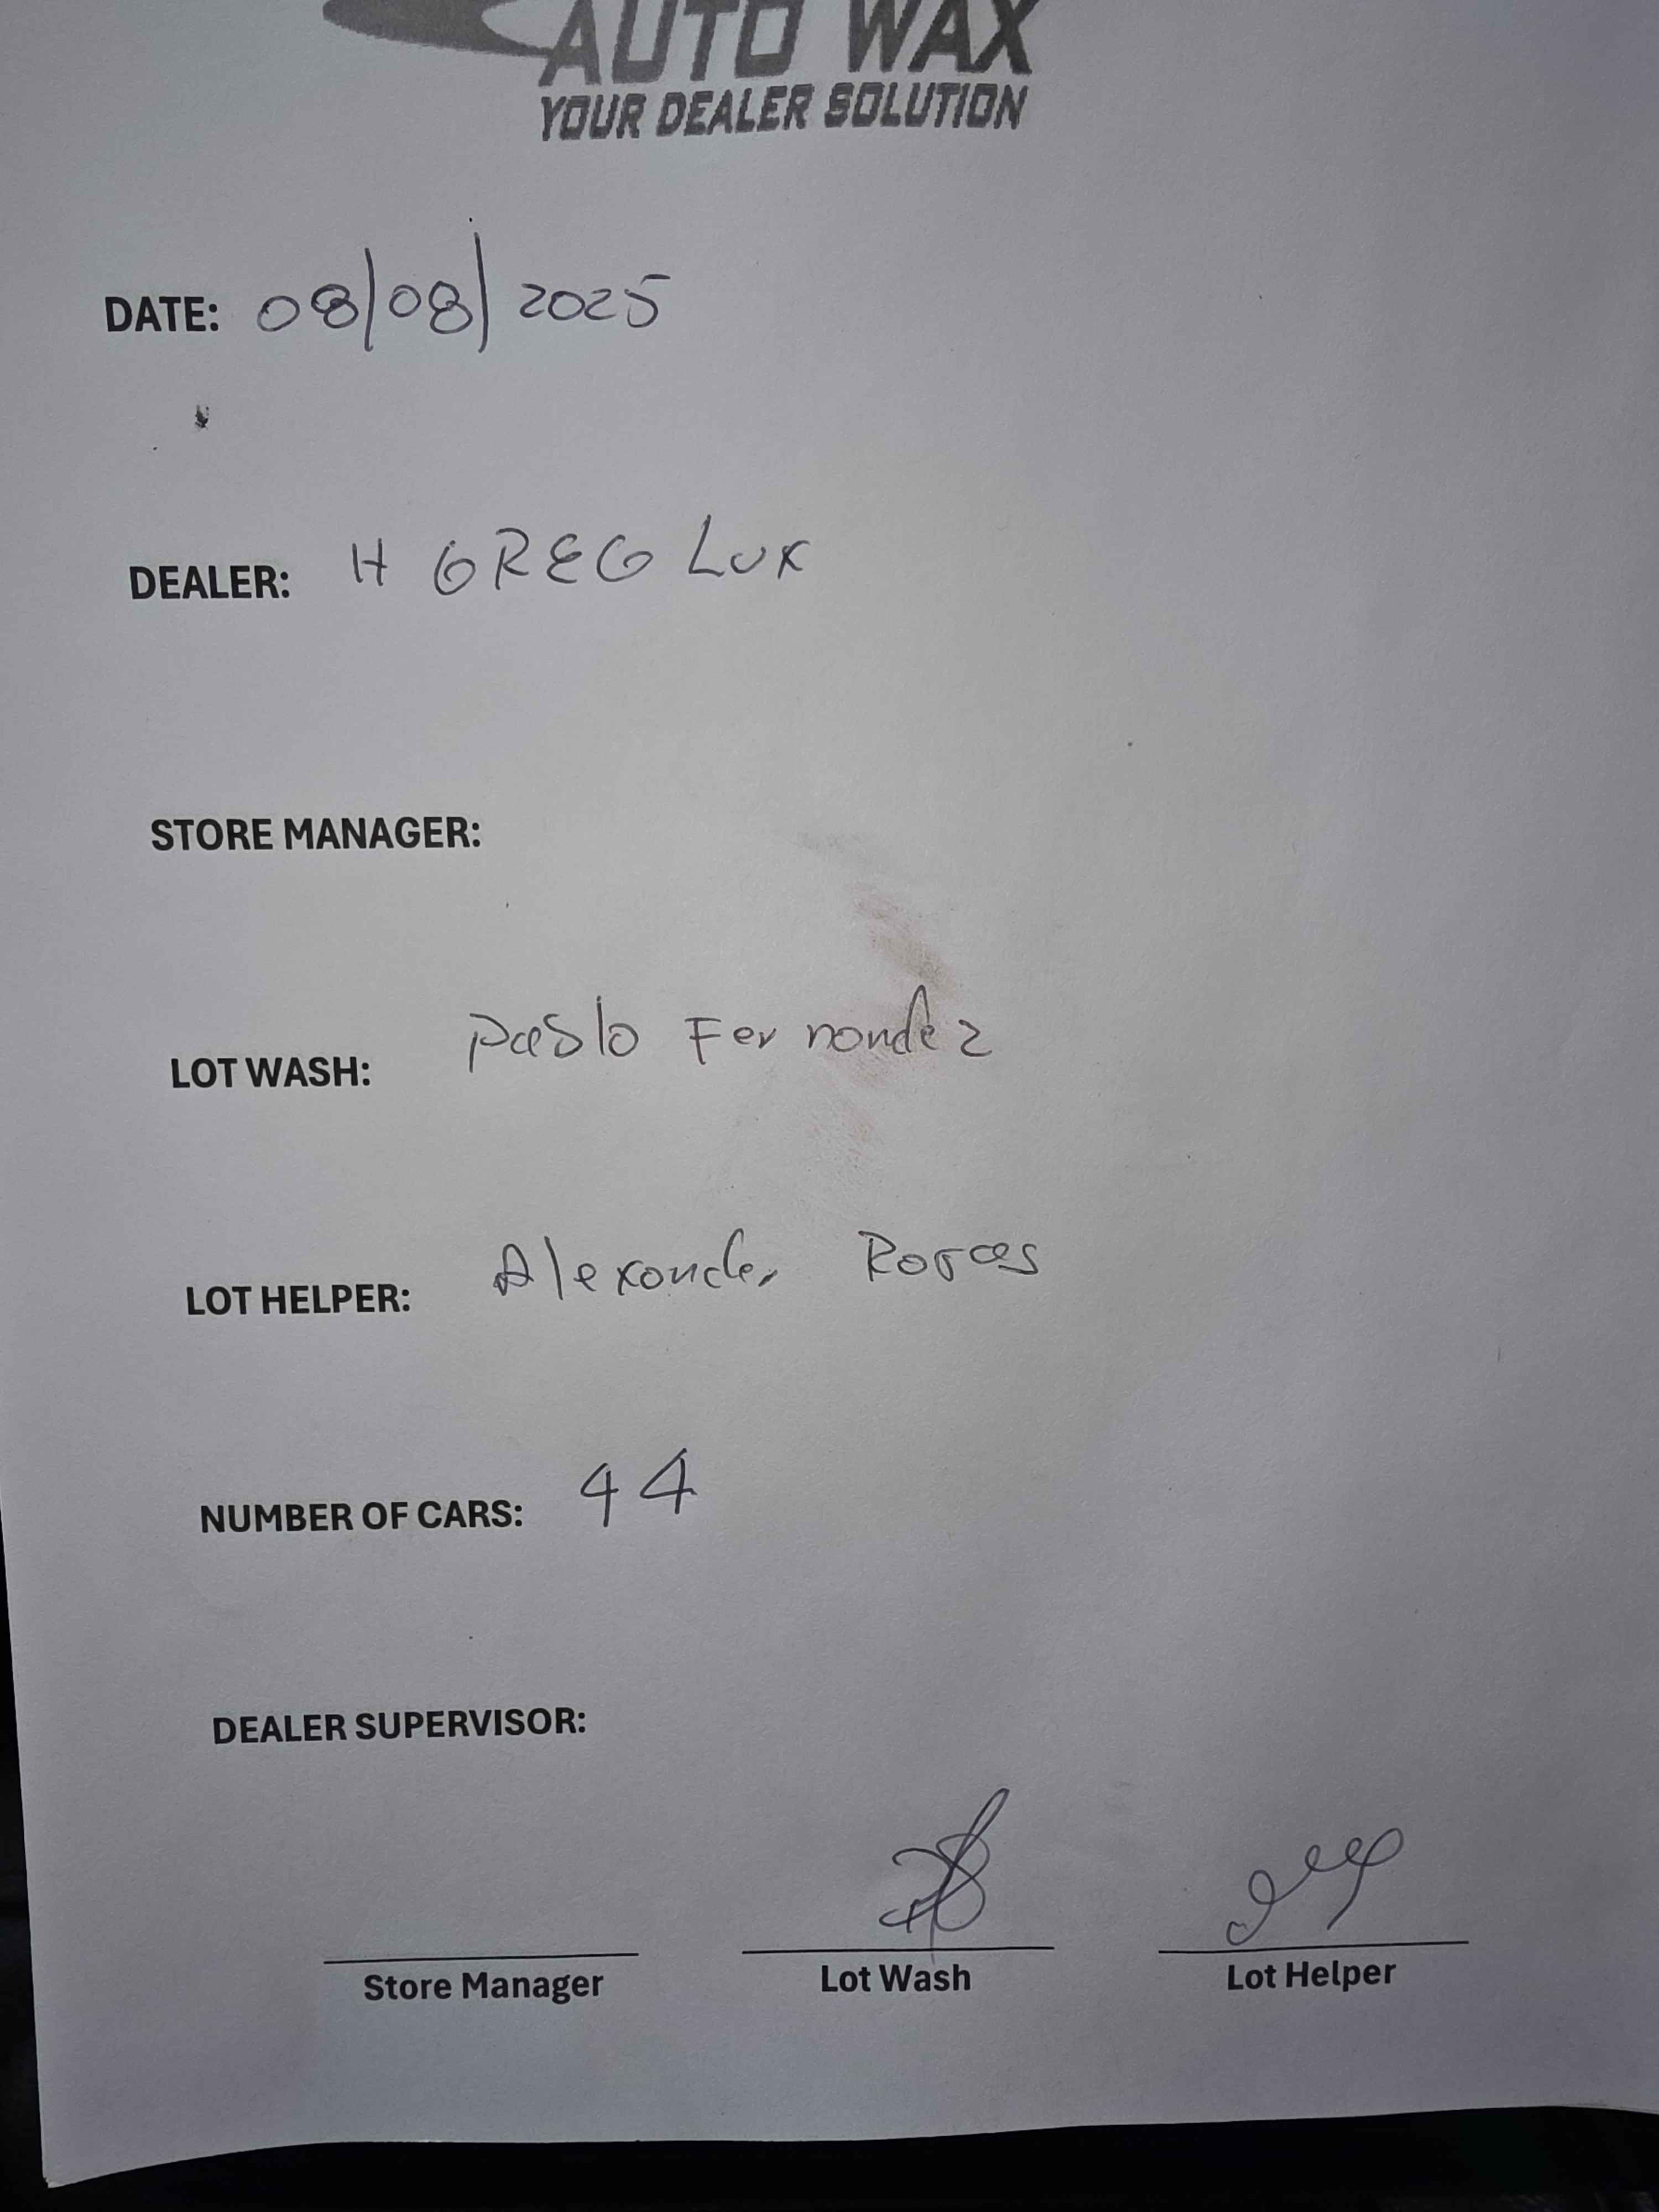 AUTO WAX
YOUR DEALER SOLUTION
DATE: 08/08/2025
DEALER: H GREG LUX
STORE MANAGER:
LOT WASH: Pablo Fernandez
LOT HELPER: Alexander
NUMBER OF CARS: 44
DEALER SUPERVISOR:
Store Manager Lot Wash Lot Helper